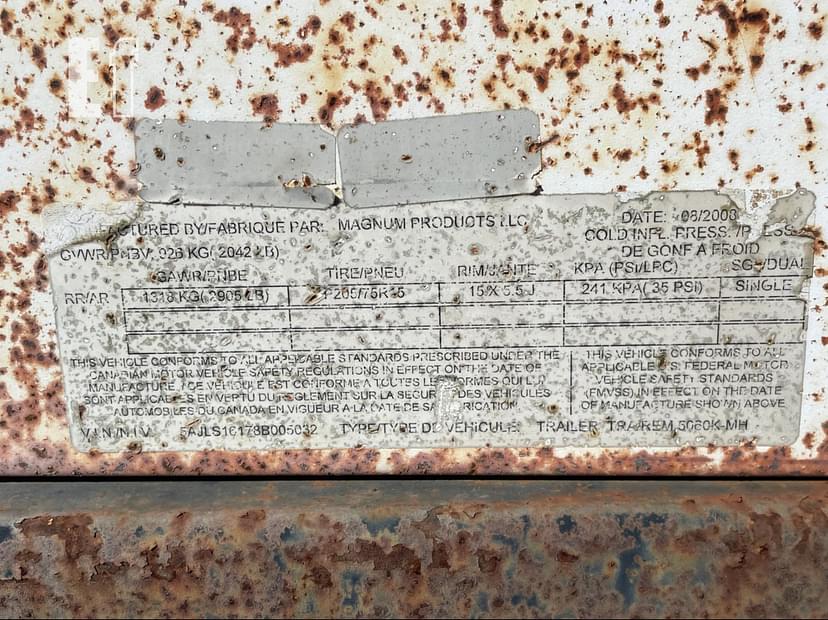 EF
MANUFACTURED BY/FABRIQUE PAR: MAGNUM PRODUCTS LLC DATE: 08/2008
GVWR/PNBV 926 KG( 2042 LB) COLD INFL. PRESS. /PRESS.
DE GONF A FROID
GAWR/PNBE TIRE/PNEU RIM/JANTE KPA (PSI/LPC) SGL/DUAL
RR/AR 1318 KG( 2905 LB) P205/75R15 15 X 5.5 J 241 KPA( 35 PSI) SINGLE
THIS VEHICLE CONFORMS TO ALL APPLICABLE STANDARDS PRESCRIBED UNDER THE
CANADIAN MOTOR VEHICLE SAFETY REGULATIONS IN EFFECT ON THE DATE OF
MANUFACTURE / CE VEHICULE EST CONFORME A TOUTES LES NORMES QUI LUI
SONT APPLICABLES EN VERTU DU REGLEMENT SUR LA SECURITE DES VEHICULES
AUTOMOBILES DU CANADA EN VIGUEUR A LA DATE DE SA FABRICATION.
THIS VEHICLE CONFORMS TO ALL
APPLICABLE U.S. FEDERAL MOTOR
VEHICLE SAFETY STANDARDS
(FMVSS) IN EFFECT ON THE DATE
OF MANUFACTURE SHOWN ABOVE
V.I.N./N.I.V. 5AJLS16178B005032 TYPE/TYPE DE VEHICULE: TRAILER TRA/REM 5060K-MH